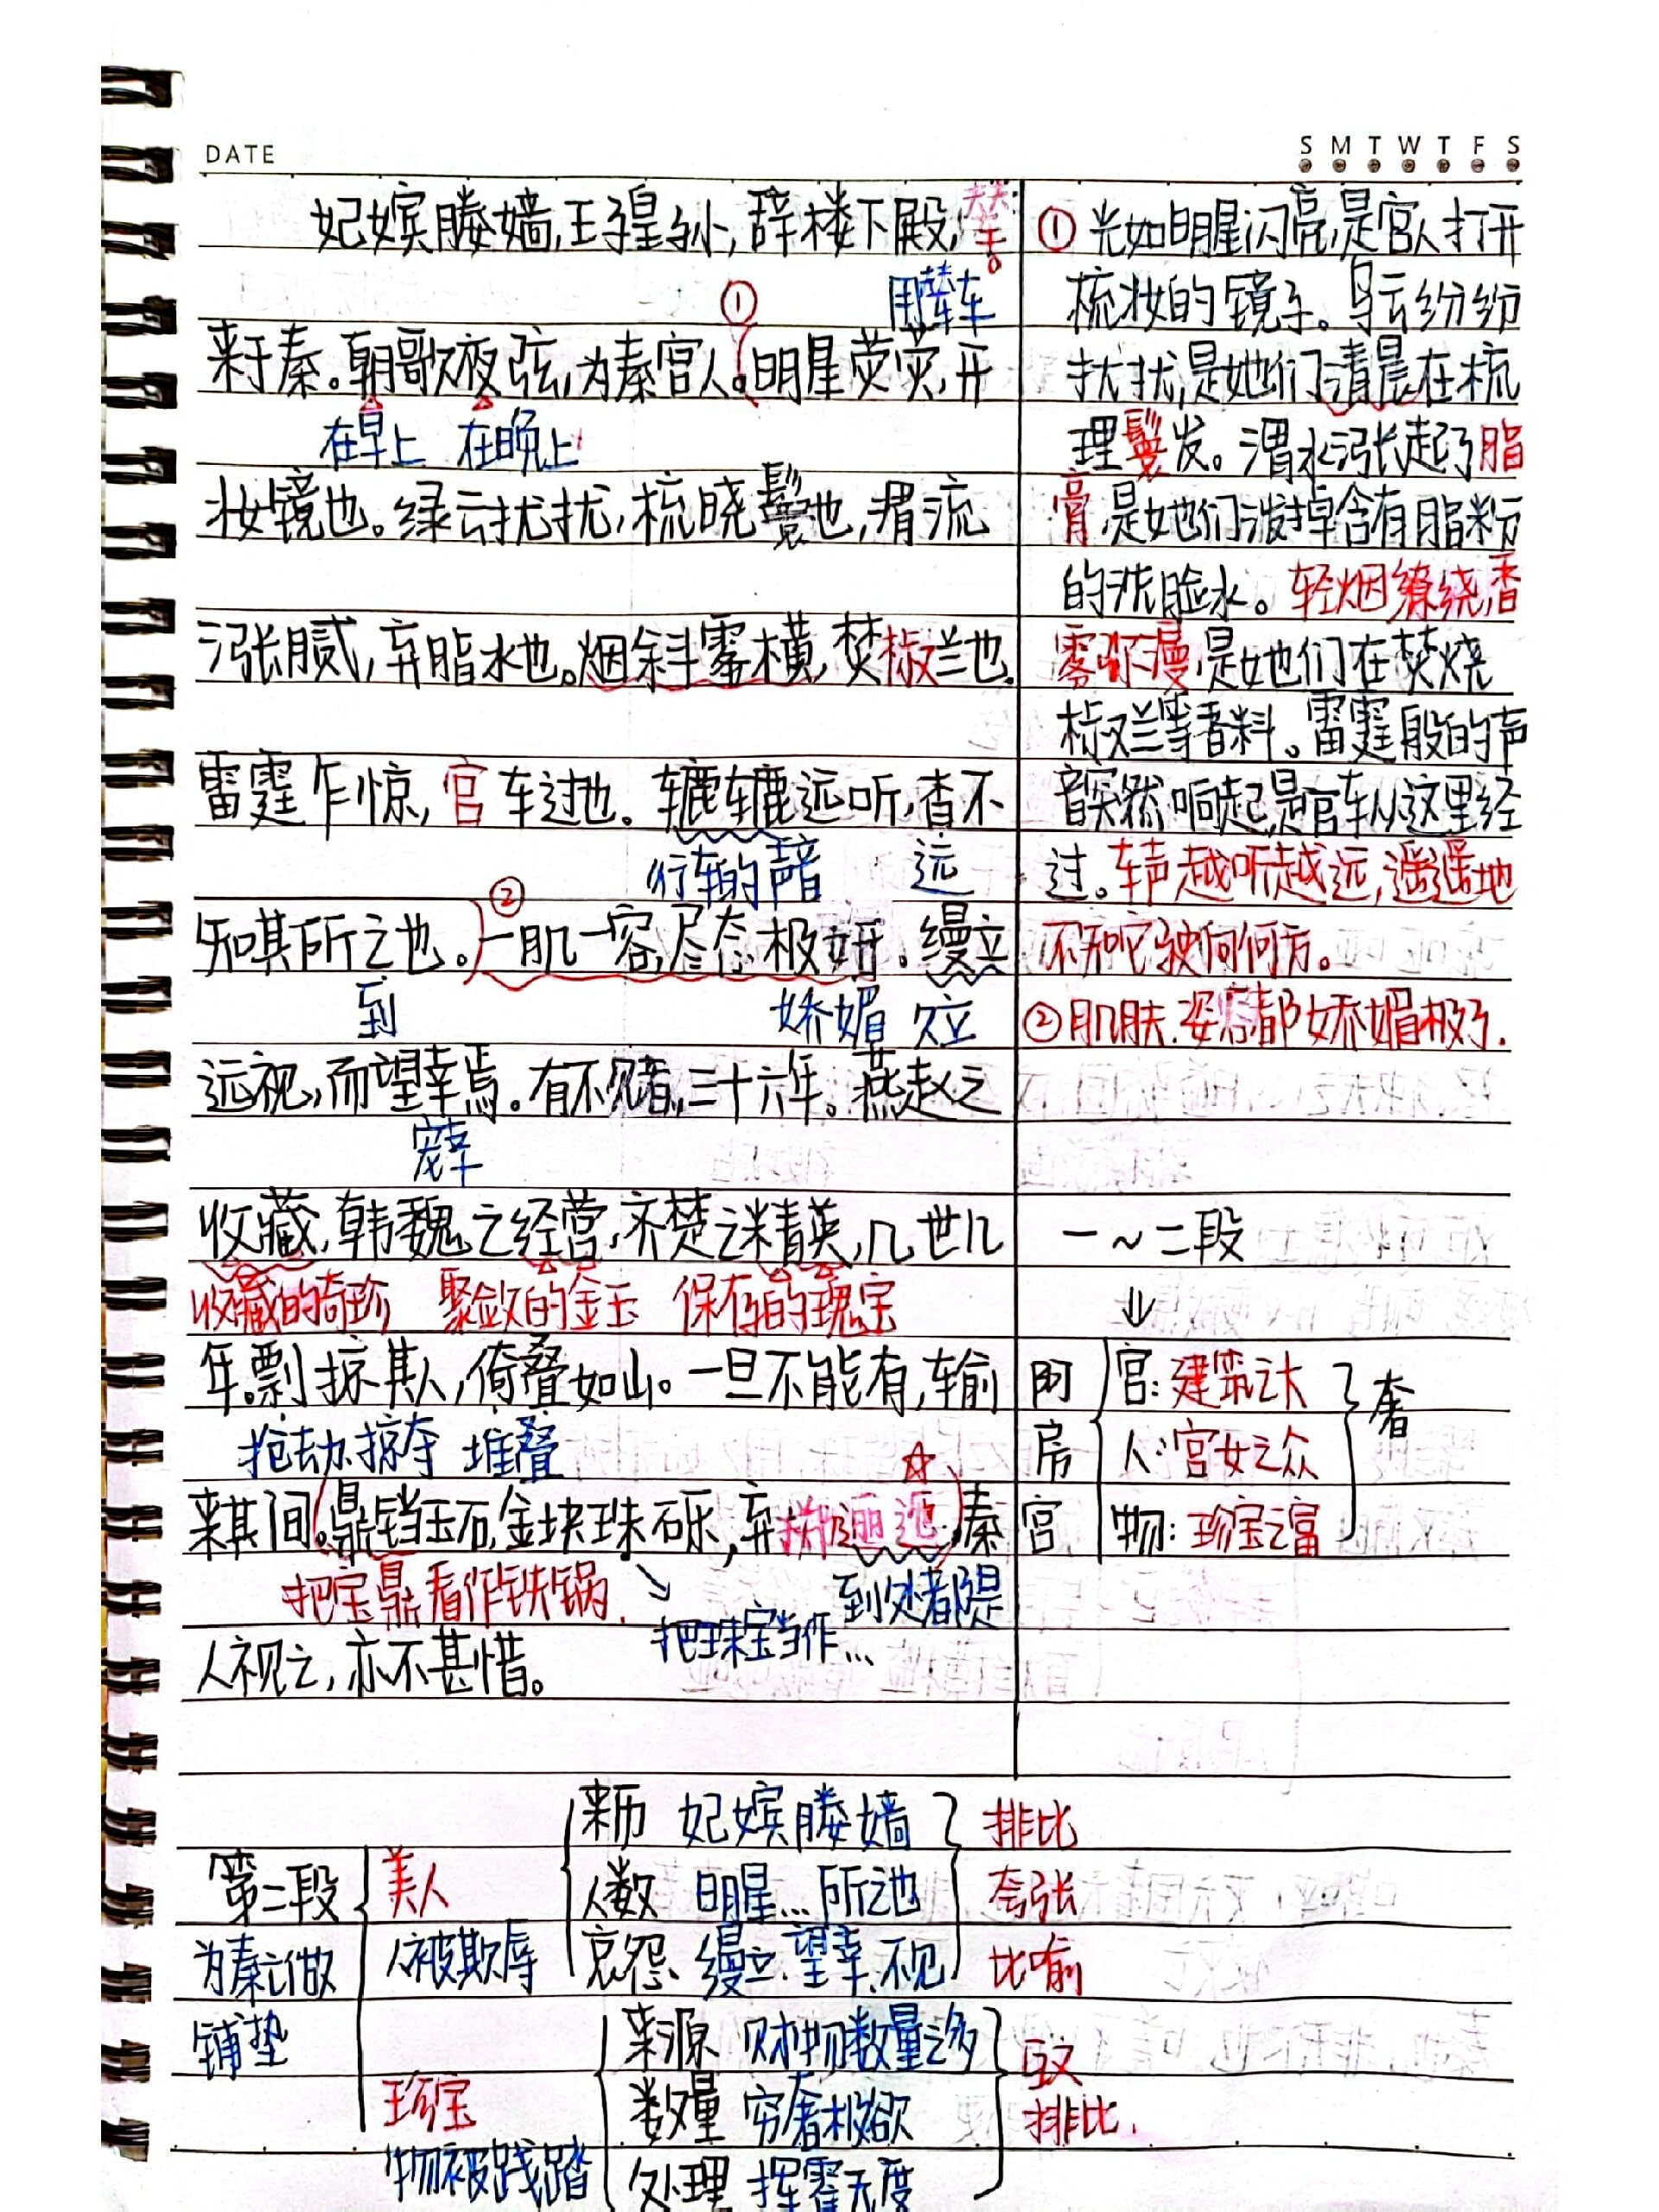 DATE
S M T W T F S
妃嫔媵嫱,王子皇孙,辞楼下殿,辇
①
用辇车
来于秦。朝歌夜弦,为秦宫人。明星荧荧,开
在早上 在晚上
妆镜也。绿云扰扰,梳晓鬟也,渭流
涨腻,弃脂水也。烟斜雾横,焚椒兰也。
雷霆乍惊,宫车过也。辘辘远听,杳不
行车的声音 远
②
知其所之也。一肌一容,尽态极妍。缦立
到 娇媚 久立
远视,而望幸焉。有不见者,三十六年。燕赵之
宠幸
收藏,韩魏之经营,齐楚之精英,几世几
收藏的奇珍 聚敛的金玉 保存的瑰宝
年。剽掠其人,倚叠如山。一旦不能有,输
抢劫、掠夺 堆叠
来其间。鼎铛玉石,金块珠砾,弃掷逦迤,秦
把宝鼎看作铁锅. 到处都是
把珠宝当作...
人视之,亦不甚惜。
①光如明星闪亮,是宫人打开
梳妆的镜子。乌云纷纷
扰扰,是她们清晨在梳
理鬟发。渭水涨起了脂
膏,是她们泼掉含有脂粉
的洗脸水。轻烟缭绕,香
雾弥漫,是她们在焚烧
椒兰等香料。雷霆般的声
音突然响起,是宫车从这里经
过。车声越听越远,遥遥地
不知它驶向何方。
②肌肤.姿态都娇媚极了.
一~二段
↓
阿房宫
宫:建筑之大
人:宫女之众
物:珍宝之富
奢
第二段
为秦亡做
铺垫
美人
人被欺辱
来历 妃嫔媵嫱 排比
人数 明星...所之也 夸张
哀怨 缦立.望幸.不见 比喻
珍宝
物被践踏
来源 财物数量之多
数量 穷奢极欲
处理 挥霍无度
互文
排比.